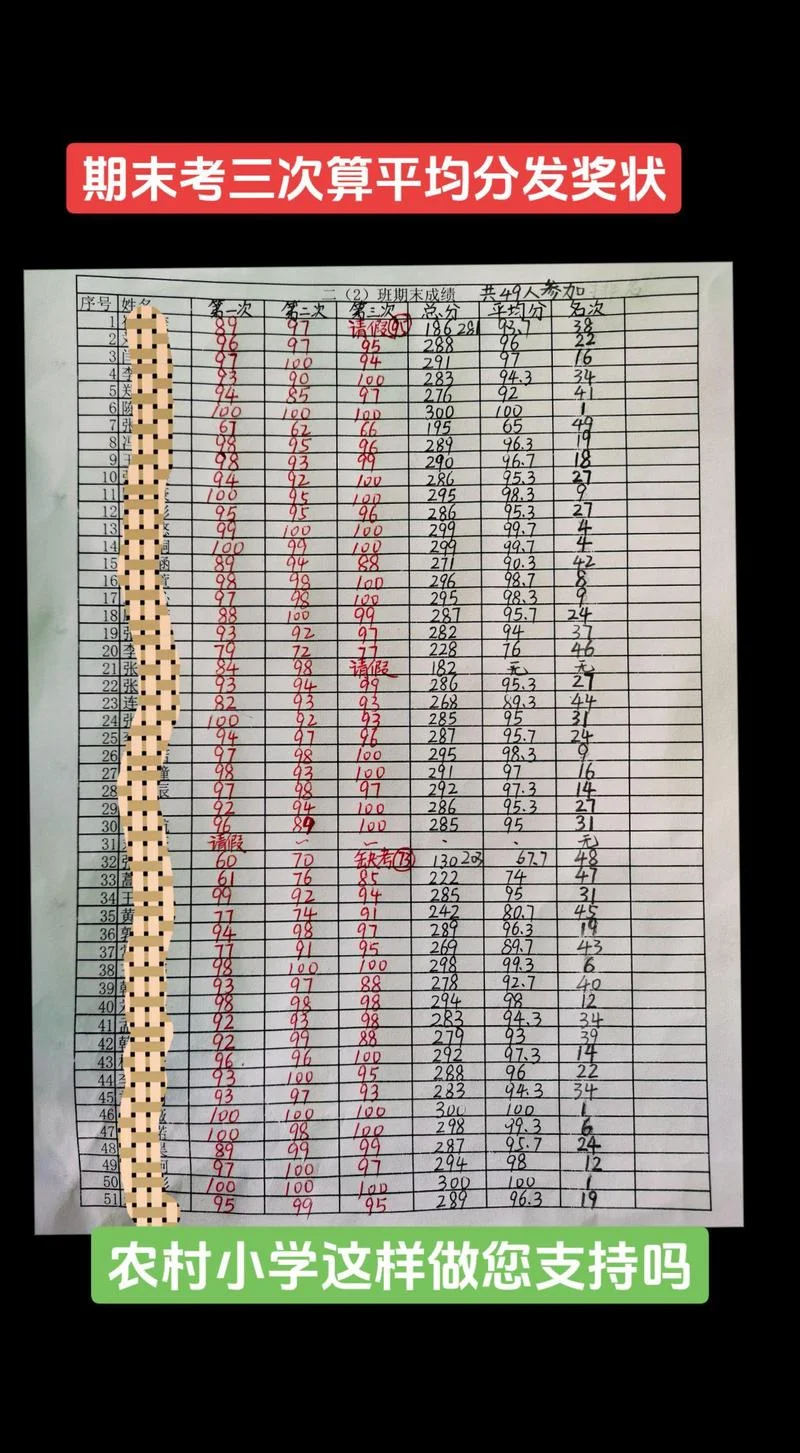 期末考三次算平均分发奖状
二（2）班期末成绩 共49人参加
序号 姓名 第一次 第二次 第三次 总分 平均分 名次
1 89 97 请假 95 186 281 93.7 38
2 96 97 95 288 96 22
3 闫 97 100 94 291 97 16
4 李 93 90 100 283 94.3 34
5 郑 94 85 97 276 92 41
6 陈 100 100 100 300 100 1
7 张 67 62 66 195 65 49
8 冯 98 95 96 289 96.3 19
9 王 98 93 99 290 96.7 18
10 94 92 100 286 95.3 27
11 100 95 100 295 98.3 9
12 彤 95 95 96 286 95.3 27
13 悠 99 100 100 299 99.7 4
14 桐 100 99 100 299 99.7 4
15 涵 89 94 88 271 90.3 42
16 萱 98 98 100 296 98.7 8
17 97 98 100 295 98.3 9
18 88 100 99 287 95.7 24
19 张 93 92 97 282 94 37
20 李 79 72 77 228 76 46
21 张 84 98 请假 182 无 无
22 张 93 94 99 286 95.3 27
23 连 82 93 93 268 89.3 44
24 张 100 92 93 285 95 31
25 李 94 97 96 287 95.7 24
26 97 98 100 295 98.3 9
27 瞳 98 93 100 291 97 16
28 辰 97 98 97 292 97.3 14
29 92 94 100 286 95.3 27
30 航 96 89 100 285 95 31
31 请假 - - · · 无
32 张 60 70 缺考 73 130 203 67.7 48
33 蒿 61 76 85 222 74 47
34 王 99 92 94 285 95 31
35 黄 77 74 91 242 80.7 45
36 郭 94 98 97 289 96.3 19
37 77 91 95 269 89.7 43
38 98 100 100 298 99.3 6
39 韩 93 97 88 278 92.7 40
40 98 98 98 294 98 12
41 孟 92 93 98 283 94.3 34
42 韩 92 99 88 279 93 39
43 96 96 100 292 97.3 14
44 李 93 100 95 288 96 22
45 93 97 93 283 94.3 34
46 100 100 100 300 100 1
47 诺 100 98 100 298 99.3 6
48 昊 89 99 99 287 95.7 24
49 97 100 97 294 98 12
50 彤 100 100 100 300 100 1
51 95 99 95 289 96.3 19
农村小学这样做您支持吗